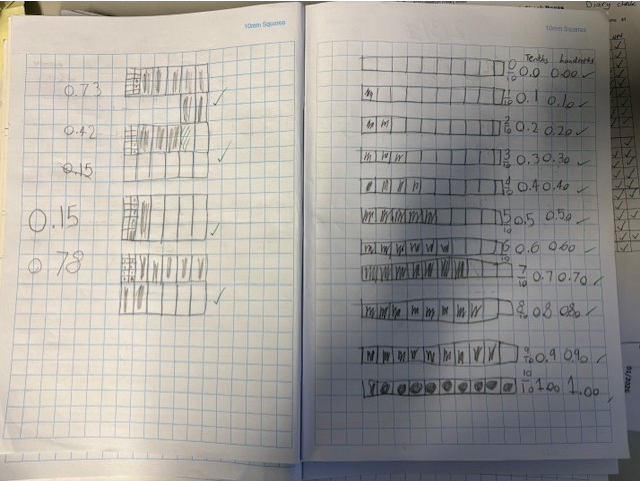 10mm Squares
0.73
0.42
0.15
0.15
0.78
10mm Squares
Diary check
Tenths hundreths
0/10 0.0 0.00 ✓
1/10 0.1 0.10 ✓
2/10 0.2 0.20 ✓
3/10 0.3 0.30 ✓
4/10 0.4 0.40 ✓
5/10 0.5 0.50 ✓
6/10 0.6 0.60 ✓
7/10 0.7 0.70 ✓
8/10 0.8 0.80 ✓
9/10 0.9 0.90 ✓
10/10 1.00 1.00